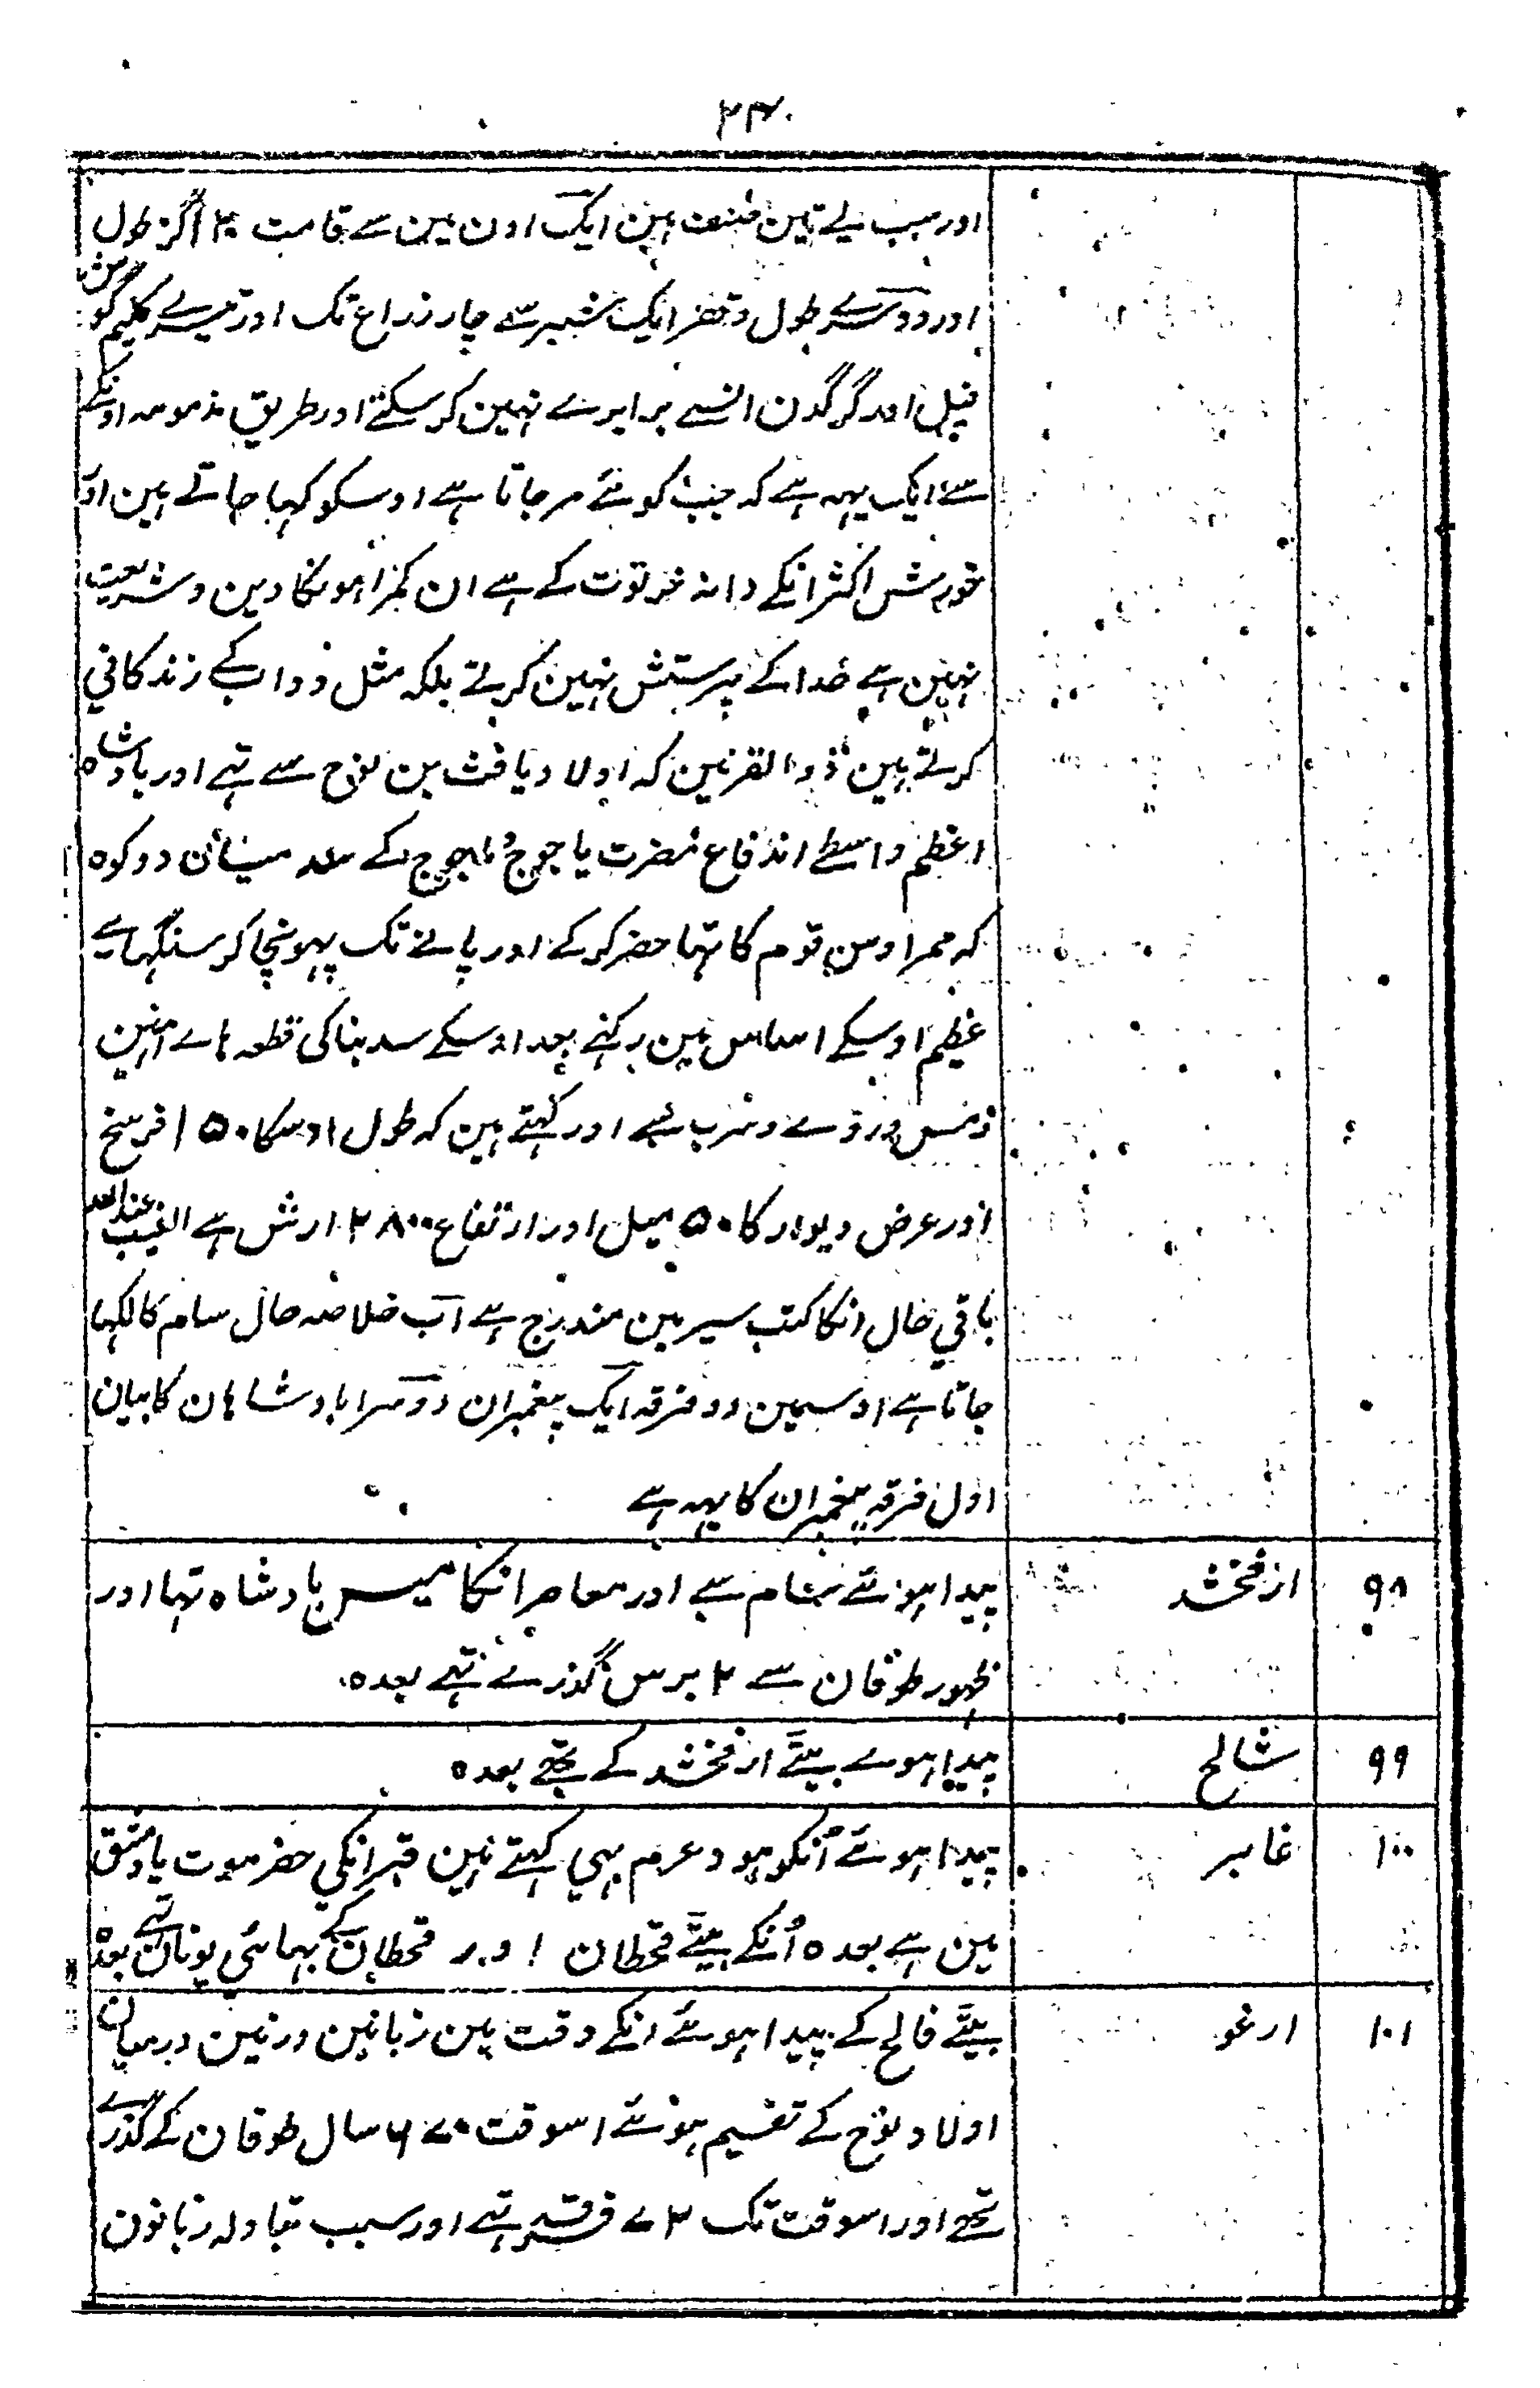 ۲۳۰
اور سب یے تین صنف ہین ایک اون مین سے قامت ۱۲۰ گز طول
اور دوسرے طول و قصر ایک شبیر سے چار زراع تک اور تیسرے کلیم گوش
فیل اور گرگدن انسے برابرے نہین کر سکتے اور طریق مذمومہ اونکے
سے ایک یہہ ہے کہ جب کوئے مر جاتا ہے اوسکو کہا جاتے ہین اور
خورش اکثر انکے دانہ خرتوت کے ہے ان گمراہونکا دین و شریعت
نہین ہے خدا کے پرستش نہین کرتے بلکہ مثل دواب کے زندگانی
کرتے ہین ذو القرنین کہ اولاد یافث بن نوح سے تہے اور بادشاہ
اعظم واسطے اندفاع مضرت یاجوج و ماجوج کے سد میان دو کوہ
کہ ممر اوس قوم کا تہا حضر کر کے اور پانے تک پہونچا کر سنگہاے
عظیم اوسکے اساس مین رکہنے بعد اوسکے سد بنا کی قطعہ ہاے آہنین
و مس و روے و سرب سے اور کہتے ہین کہ طول اوسکا ۱۵۰ فرسخ
اور عرض دیوار کا ۵۰ میل اور ارتفاع ۲۸۰۰ ارش ہے الغیب عند اللہ
باقی حال انکا کتب سیر مین مندرج ہے اب خلاصہ حال سام کا لکہا
جاتا ہے اوسمین دو فرقہ ایک پیغمبران دوسرا بادشاہان کا بیان
اول فرقہ پیغمبران کا یہہ ہے
۹۸ ارفخشد پیدا ہوئے سام سے اور معاصر انکا میس بادشاہ تہا اور
ظہور طوفان سے ۲ برس گذرے تہے بعدہ
۹۹ شالح پیدا ہوے بیٹے ارفخشد کے تہے بعدہ
۱۰۰ عابر پیدا ہوئے اُنکو ہود عرم بہی کہتے ہین قبر انکی حضر موت یا دمشق
مین ہے بعدہ اُنکے بیٹے قحطان اور قحطان کے بہائی یونان تہے بعدہ
۱۰۱ ارغو بیٹے فالح کے پیدا ہوئے انکے وقت مین زبانین و زمین درمیان
اولاد نوح کے تقسیم ہوئے اسوقت ۶۷۰ سال طوفان کے گذرے
تہے اور اسوقت تک ۷۲ فرقے تہے اور سبب تبادلہ زبانون